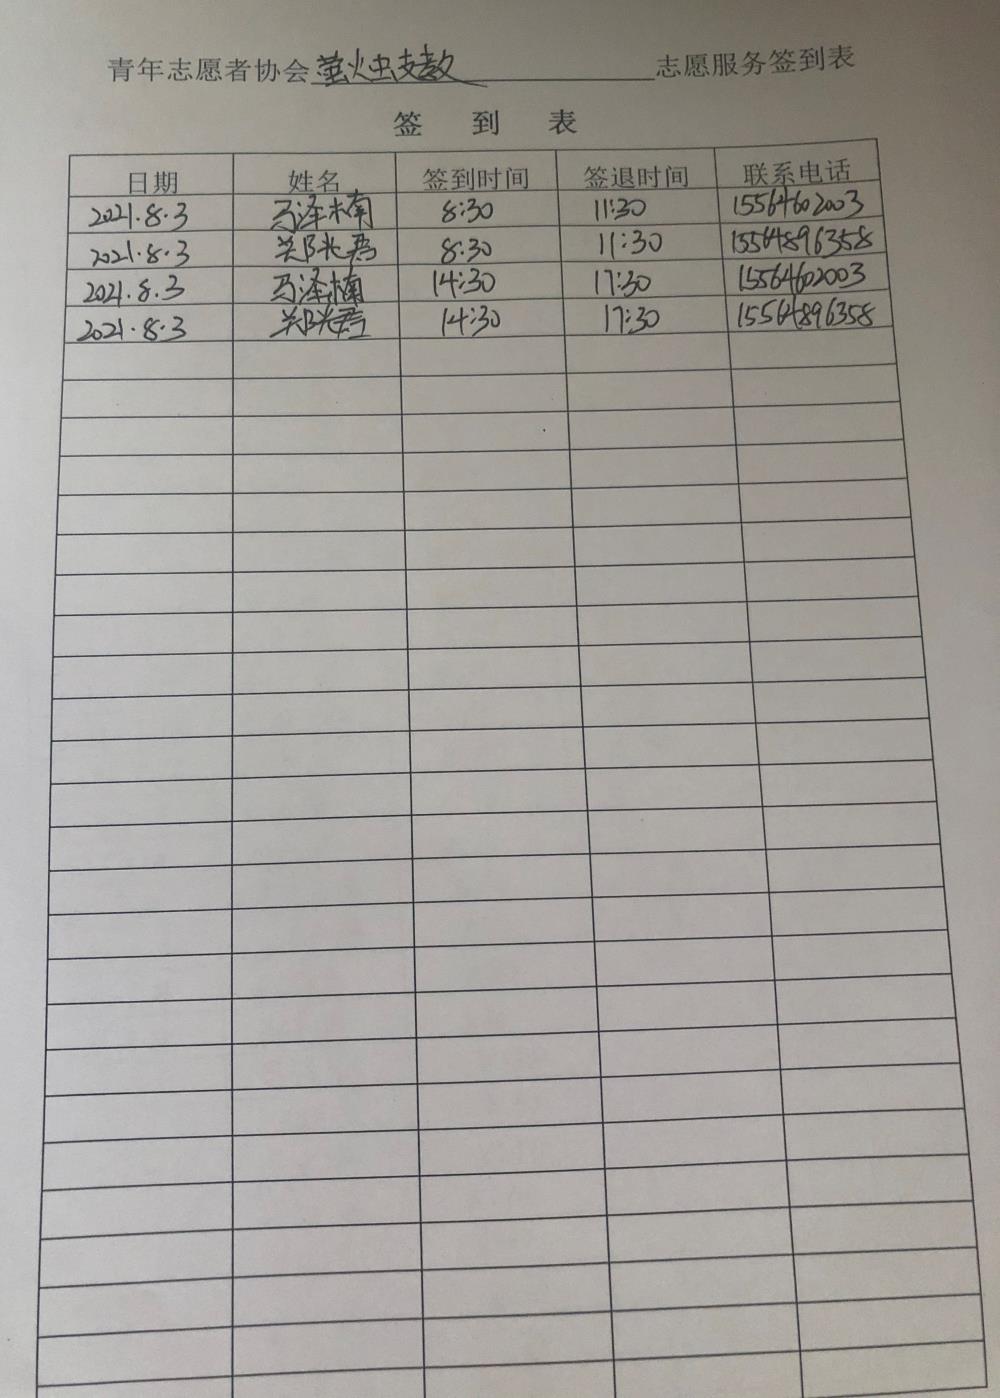 青年志愿者协会萤火虫支教志愿服务签到表
签 到 表
日期 姓名 签到时间 签退时间 联系电话
2021.8.3 马泽楠 8:30 11:30 15564602003
2021.8.3 郑 8:30 11:30 15564896358
2021.8.3 马泽楠 14:30 17:30 15564602003
2021.8.3 郑 14:30 17:30 15564896358